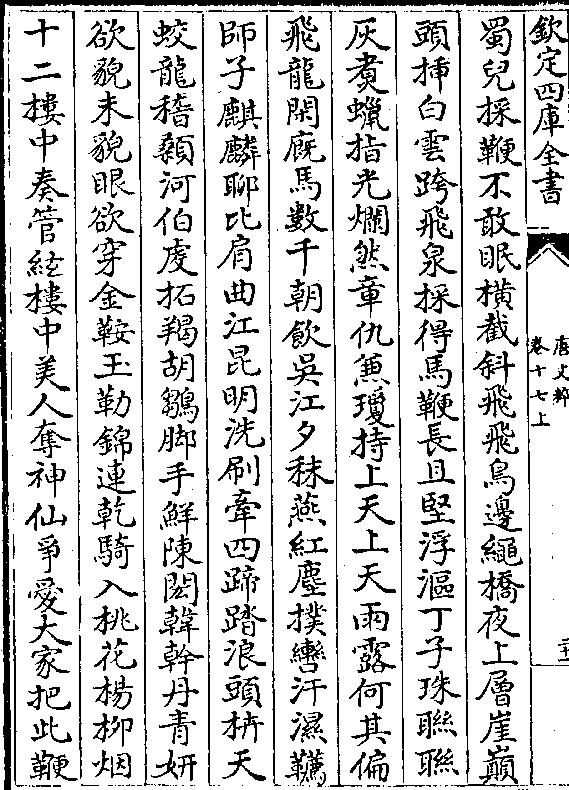 欽定四庫全書
唐文粹
卷十七上
蜀兒採鞭不敢眠橫截斜飛飛鳥邊繩橋夜上層崖巔
頭揷白雲跨飛泉採得馬鞭長且堅浮漚丁子珠聯聯
灰煑蠟指光爛然章仇兼瓊持上天上天雨露何其偏
飛龍閑廐馬數千朝飲吳江夕秣燕紅塵撲轡汗濕韉
師子麒麟聊比肩曲江昆明洗刷牽四蹄踏浪頭枿天
蛟龍稽顙河伯虔拓羯胡鶵脚手鮮陳閎韓幹丹青妍
欲貌未貌眼欲穿金鞍玉勒錦連乾騎入桃花楊柳烟
十二樓中奏管絃樓中美人奪神仙爭愛大家把此鞭